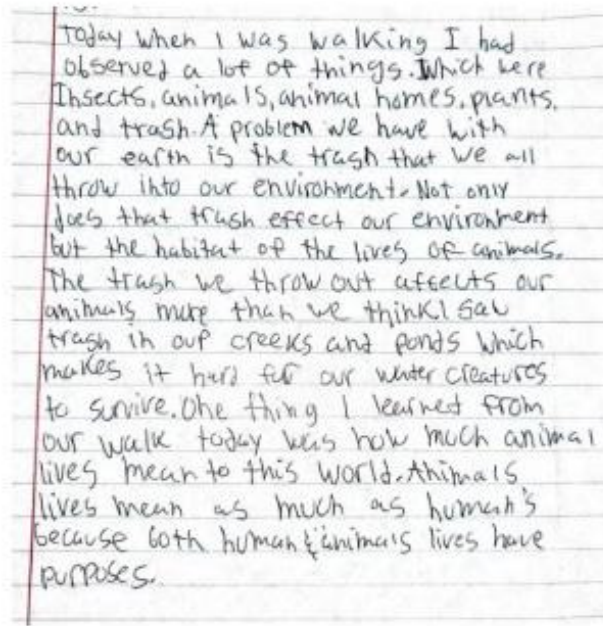 Today when I was walking I had
observed a lot of things. Which were
Insects, animals, animal homes, plants,
and trash. A problem we have with
our earth is the trash that we all
throw into our environment. Not only
does that trash effect our environment
but the habitat of the lives of animals.
The trash we throw out affects our
animals more than we think. I saw
trash in our creeks and ponds which
makes it hard for our water creatures
to survive. One thing I learned from
our walk today was how much animal
lives mean to this world. Animals
lives mean as much as human's
because both human & animals lives have
purposes.